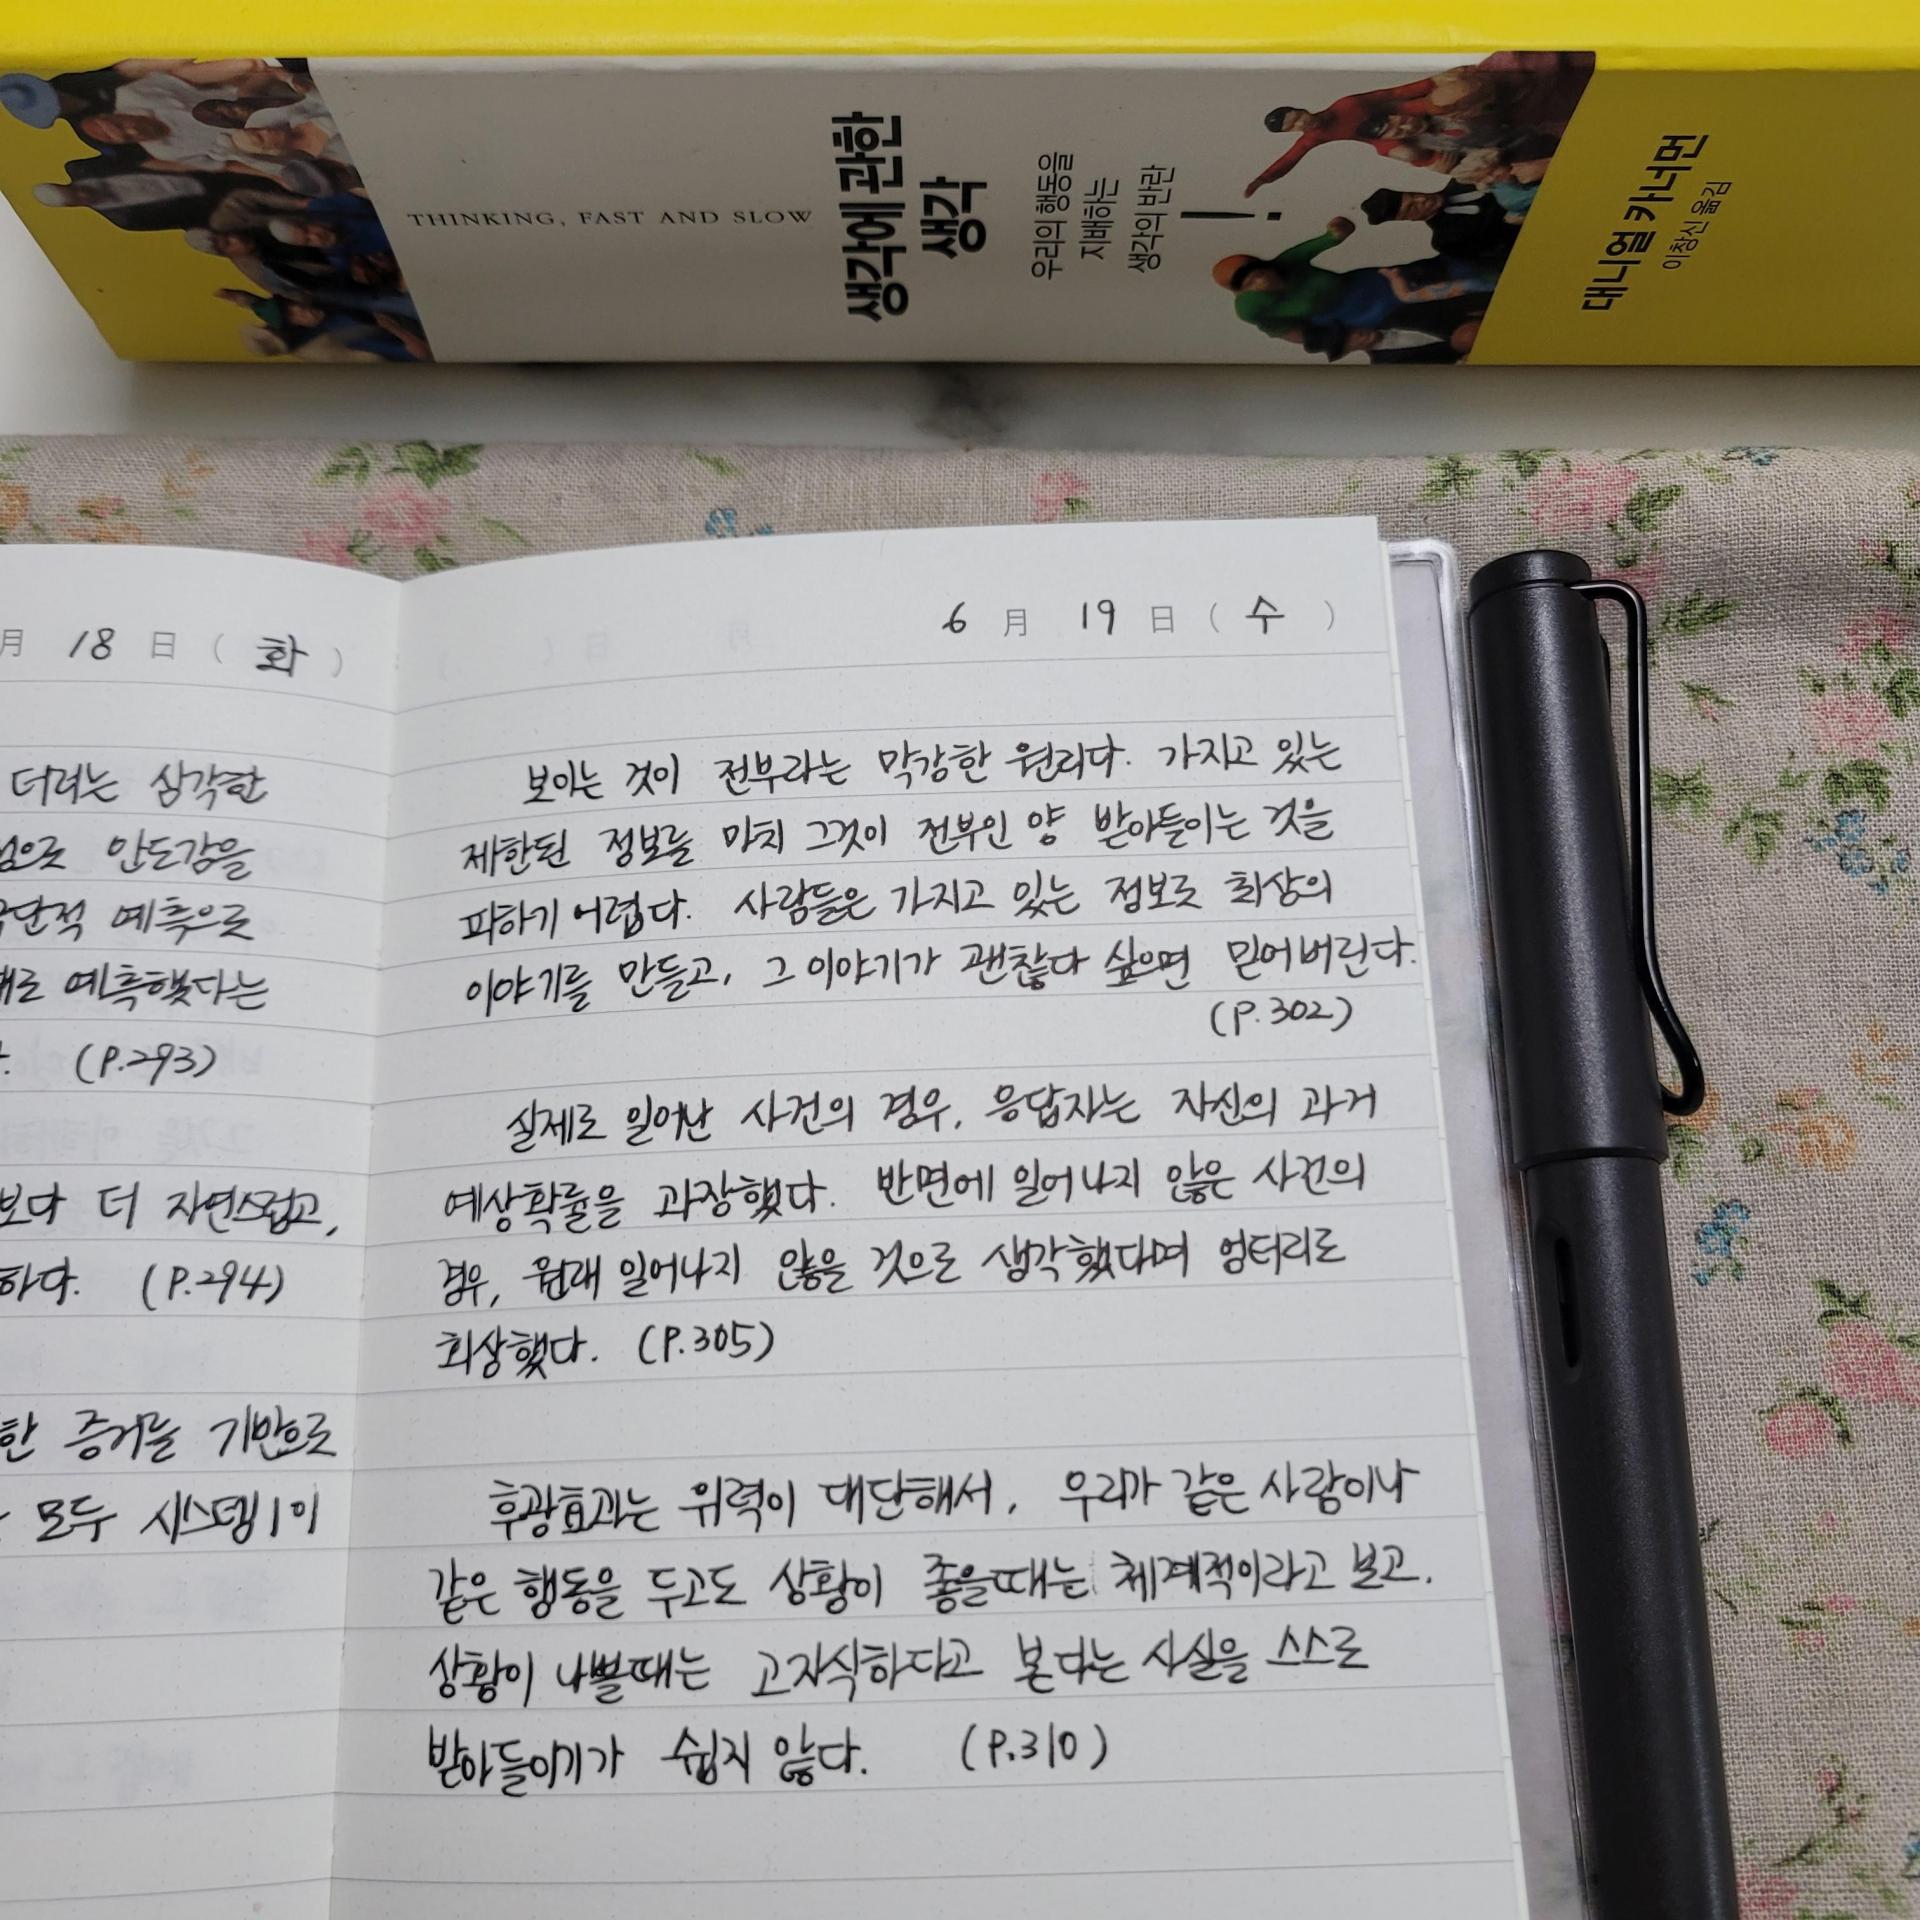 THINKING, FAST AND SLOW
생각에 관한
생각
우리의 행동을
지배하는
생각의 반란!
대니얼 카너먼
이창신 옮김
月 18 日 ( 화 )
더러는 삼각한
으로 안도감을
단적 예측으로
예측했다는
(P.293)
보다 더 자연스럽고,
하다. (P.294)
한 증거를 기반으로
모두 시스템1이
6 月 19 日 ( 수 )
보이는 것이 전부라는 막강한 원리다. 가지고 있는
제한된 정보를 마치 그것이 전부인 양 받아들이는 것을
피하기 어렵다. 사람들은 가지고 있는 정보로 최상의
이야기를 만들고, 그 이야기가 괜찮다 싶으면 믿어버린다.
(P.302)
실제로 일어난 사건의 경우, 응답자는 자신의 과거
예상확률을 과장했다. 반면에 일어나지 않은 사건의
경우, 원래 일어나지 않을 것으로 생각했다며 엉터리로
회상했다. (P.305)
후광효과는 위력이 대단해서, 우리가 같은 사람이나
같은 행동을 두고도 상황이 좋을때는 체계적이라고 보고,
상황이 나쁠때는 고지식하다고 본다는 사실을 스스로
받아들이기가 쉽지 않다. (P.310)